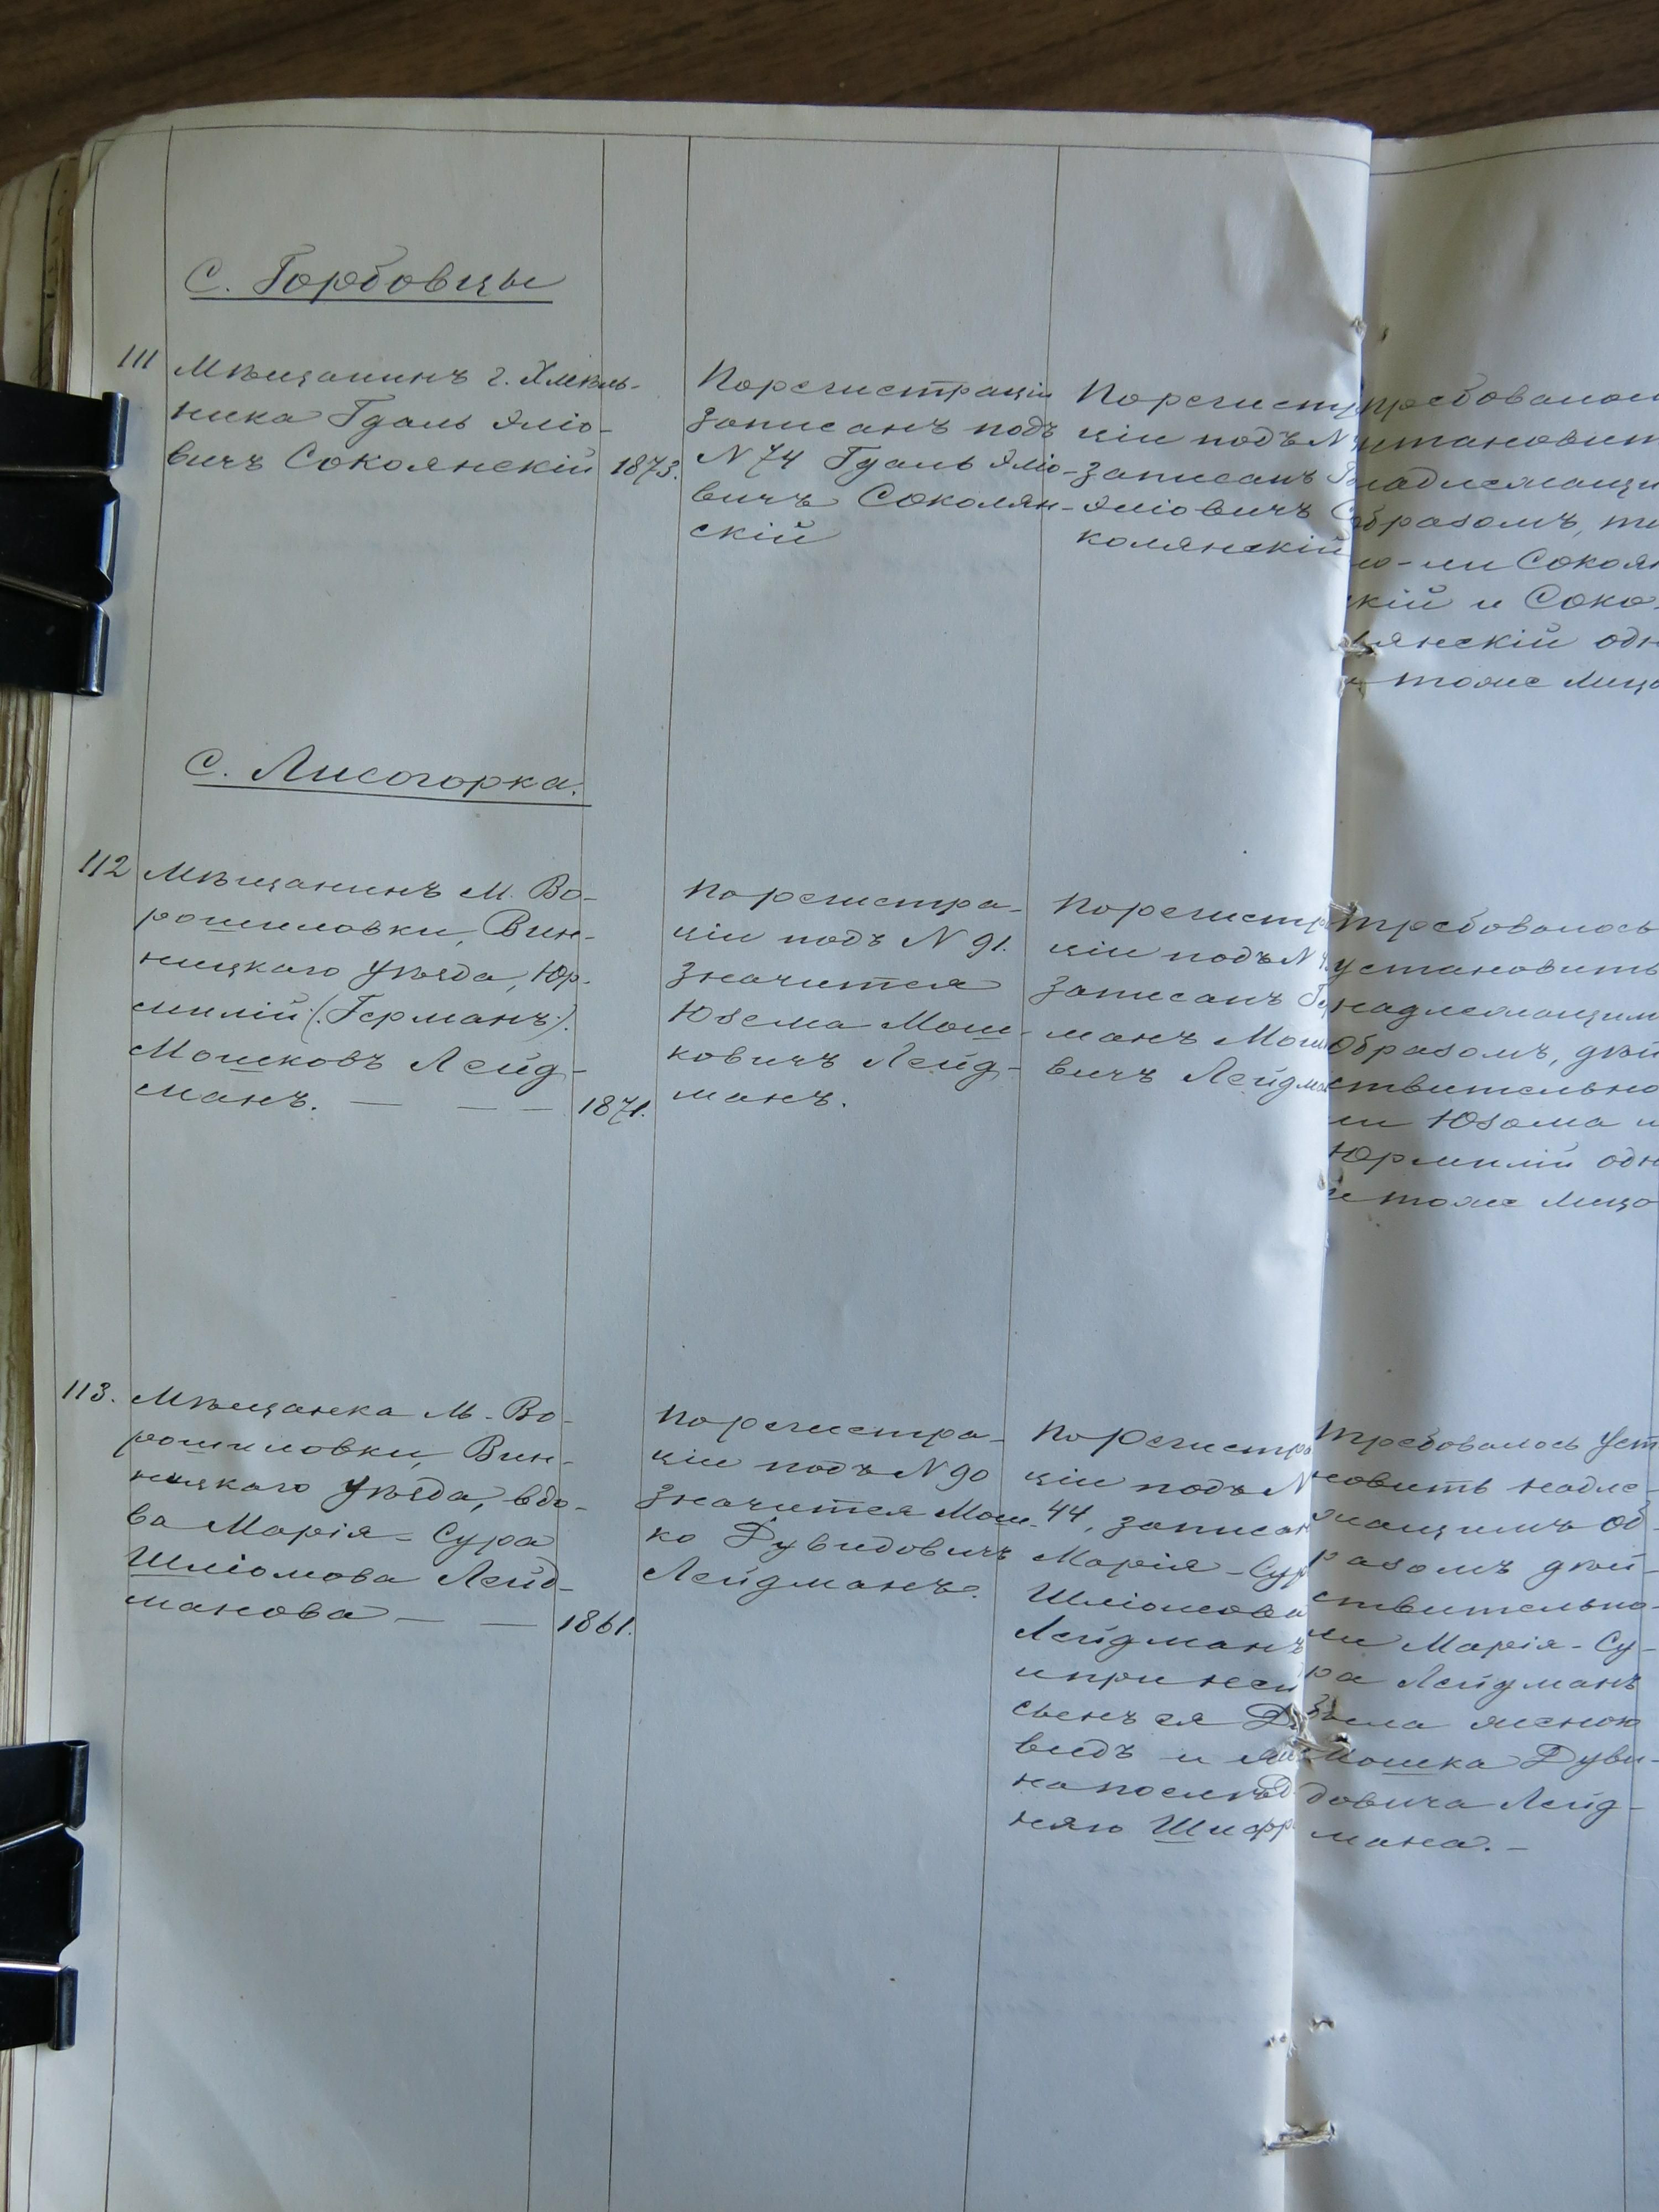 С. Горбовцы
111
Мѣщанинъ г. Хмѣль-
ника Гдаль Эліо-
вичъ Соколянскій 1873.
Порегистраціи
записанъ подъ
N 74 Гдаль Эліо-
вичъ Соколян-
скій
Порегист
ціи подъ N
записанъ
Эліовичъ С
колянскій
требовалос
установит
надлежащи
образомъ, т
ю-ли Соколя
скій и Соко-
лянскій одн
и тоже лицо
С. Лисогорка.
112
Мѣщанинъ М. Во-
рошиловки, Вин-
ницкаго уѣзда, Юр-
милій (:Германъ:)
Мошковъ Лейд-
манъ. — — — 1871.
порегистра-
ціи подъ N 91.
значится
Юзема Мош-
ковичъ Лейд-
манъ.
порегистр
ціи подъ N
записанъ Ге
манъ Мошк
вичъ Лейдма
требовалось
установить
надлежащим
образомъ, дѣй
ствительно
ли Юзома и
Юрмилій одн
и тоже лицо
113.
Мѣщанка М. Во-
рошиловки, Вин-
ницкаго уѣзда, вдо-
ва Марія-Сура
Шліомова Лейд-
манова — — 1861.
порегистра-
ціи подъ N 90
значится Мош-
ко Дувидовичъ
Лейдманъ.
порегистра
ціи подъ N
44, записан
Марія-Сур
Шліомова
Лейдманъ
и при ней
сынъ ея Ду
видъ и
напослѣд
няго Шифр
требовалось уст
новить надле-
жащимъ об-
разомъ дѣй-
ствительно-
ли Марія-Су-
ра Лейдманъ
была женою
Мошка Дуви-
довича Лейд-
мана. —